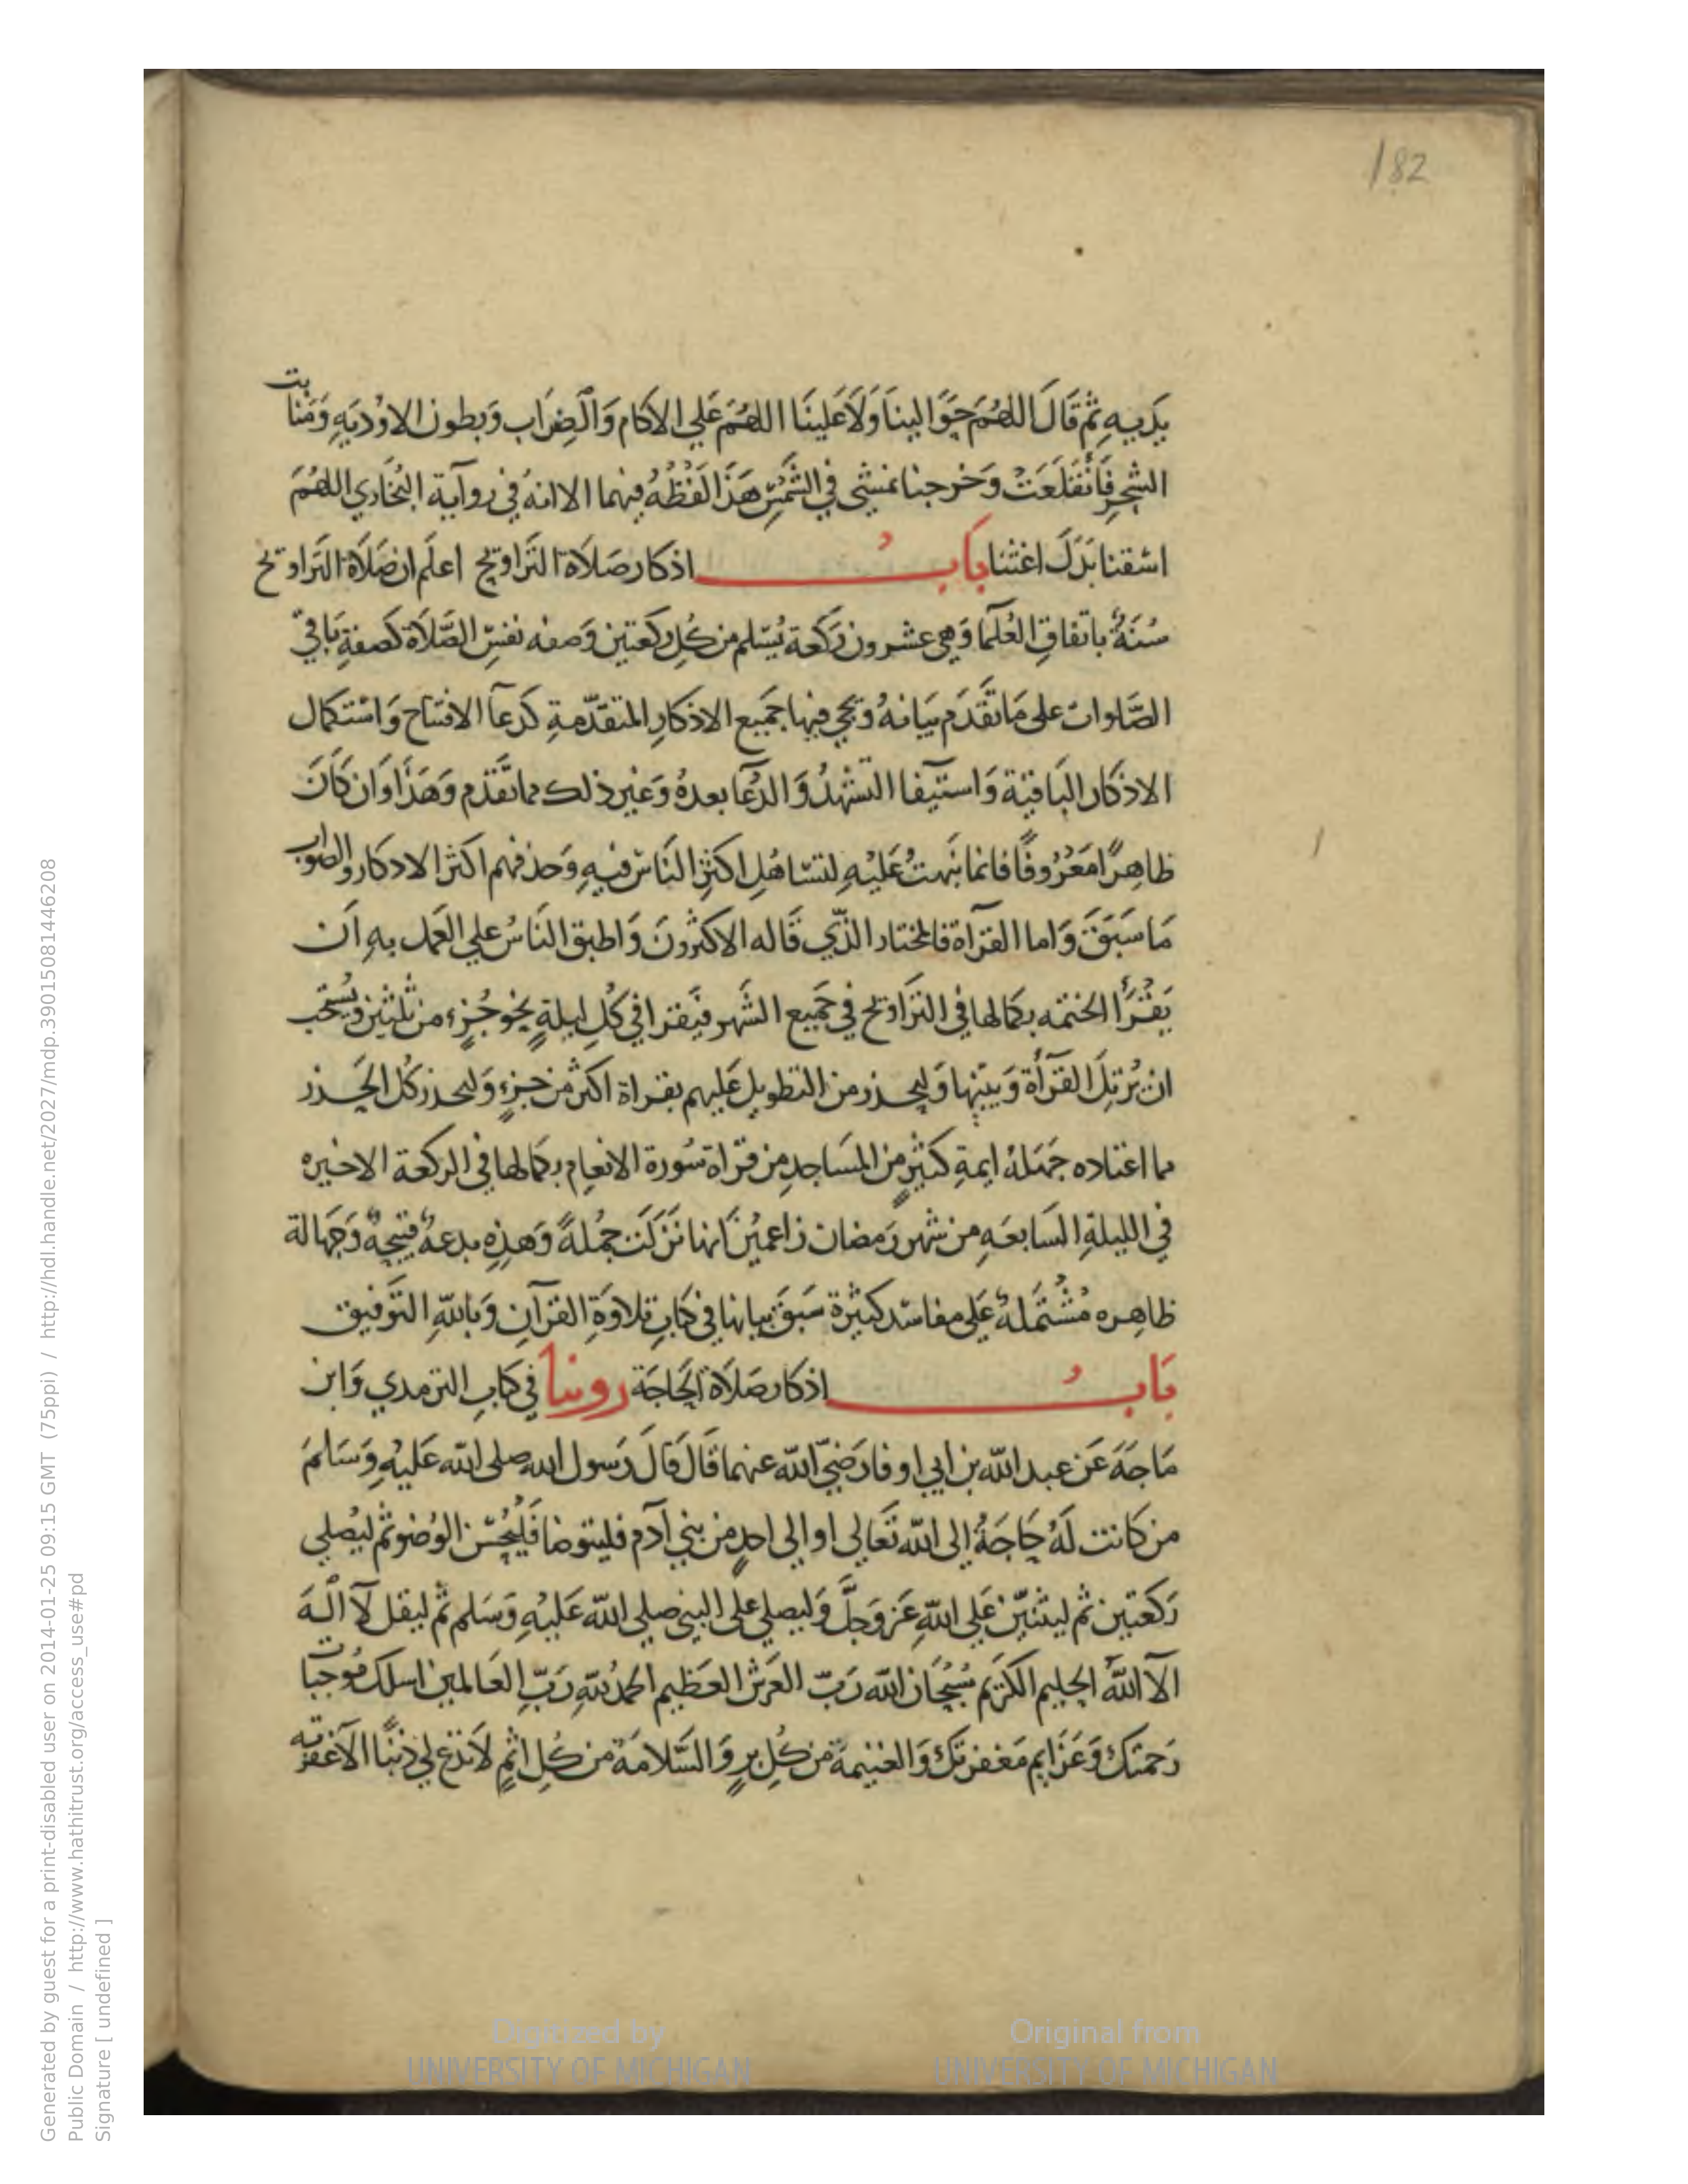 182
يديه ثم قال اللهم حوالينا ولا علينا اللهم علي الاكام والضراب وبطون الاودية ومنابت
الشجر فانقلعت وخرجنا نمشي في الشمس هذا لفظه فيهما الا انه في رواية البخاري اللهم
اسقنا بدل اغثنا باب اذكار صلاة التراويح اعلم ان صلاة التراويح
سنة باتفاق العلما وهي عشرون ركعة يسلم من كل ركعتين وصفه نفس الصلاة كصفة باقي
الصلوات على ما تقدم بيانه ويجي فيها جميع الاذكار المتقدمة كدعا الافتتاح واستكمال
الاذكار الباقية واستيفا التشهد والدعا بعده وغير ذلك مما تقدم وهذا وان كان
ظاهرا معروفا فانما نبهت عليه لتساهل اكثر الناس فيه وحذفهم اكثر الادكار والصواب
ما سبق واما القراة فالمختار الذي قاله الاكثرون واطبق الناس علي العمل به ان
يقرا الختمه بكمالها في التراويح في جميع الشهر فيقرا في كل ليلة نحو جزء من ثلثين ويستحب
ان يرتل القراة ويبينها وليحذر من التطويل عليهم بقراة اكثر من جزء وليحذر كل الحذر
مما اعتاده جهلة ايمة كثير من المساجد من قراة سورة الانعام بكمالها في الركعة الاخيره
في الليلة السابعه من شهر رمضان زاعمين انها نزلت جملة وهذه بدعة قبيحة وجهالة
ظاهره مشتملة على مفاسد كثيرة سبق بيانها في كتاب تلاوة القرآن وبالله التوفيق
باب اذكار صلاة الحاجة روينا في كتاب الترمدي وابن
ماجه عن عبد الله بن ابي اوفا رضي الله عنهما قال قال رسول الله صلى الله عليه وسلم
من كانت له حاجة إلى الله تعالى او إلى احد من بني آدم فليتوضا فليحسن الوضو ثم ليصلي
ركعتين ثم ليثنين على الله عز وجل وليصلي على النبي صلى الله عليه وسلم ثم ليقل لا اله
الا الله الحليم الكريم سبحان الله رب العرش العظيم الحمد لله رب العالمين اسلك موجبات
رحمتك وعزايم مغفرتك والغنيمة من كل بر والسلامة من كل اثم لا تدع لي ذنبا الا غفرته
Digitized by
UNIVERSITY OF MICHIGAN
Original from
UNIVERSITY OF MICHIGAN
Generated by guest for a print-disabled user on 2014-01-25 09:15 GMT (75ppi) / http://hdl.handle.net/2027/mdp.39015081446208
Public Domain / http://www.hathitrust.org/access_use#pd
Signature [ undefined ]